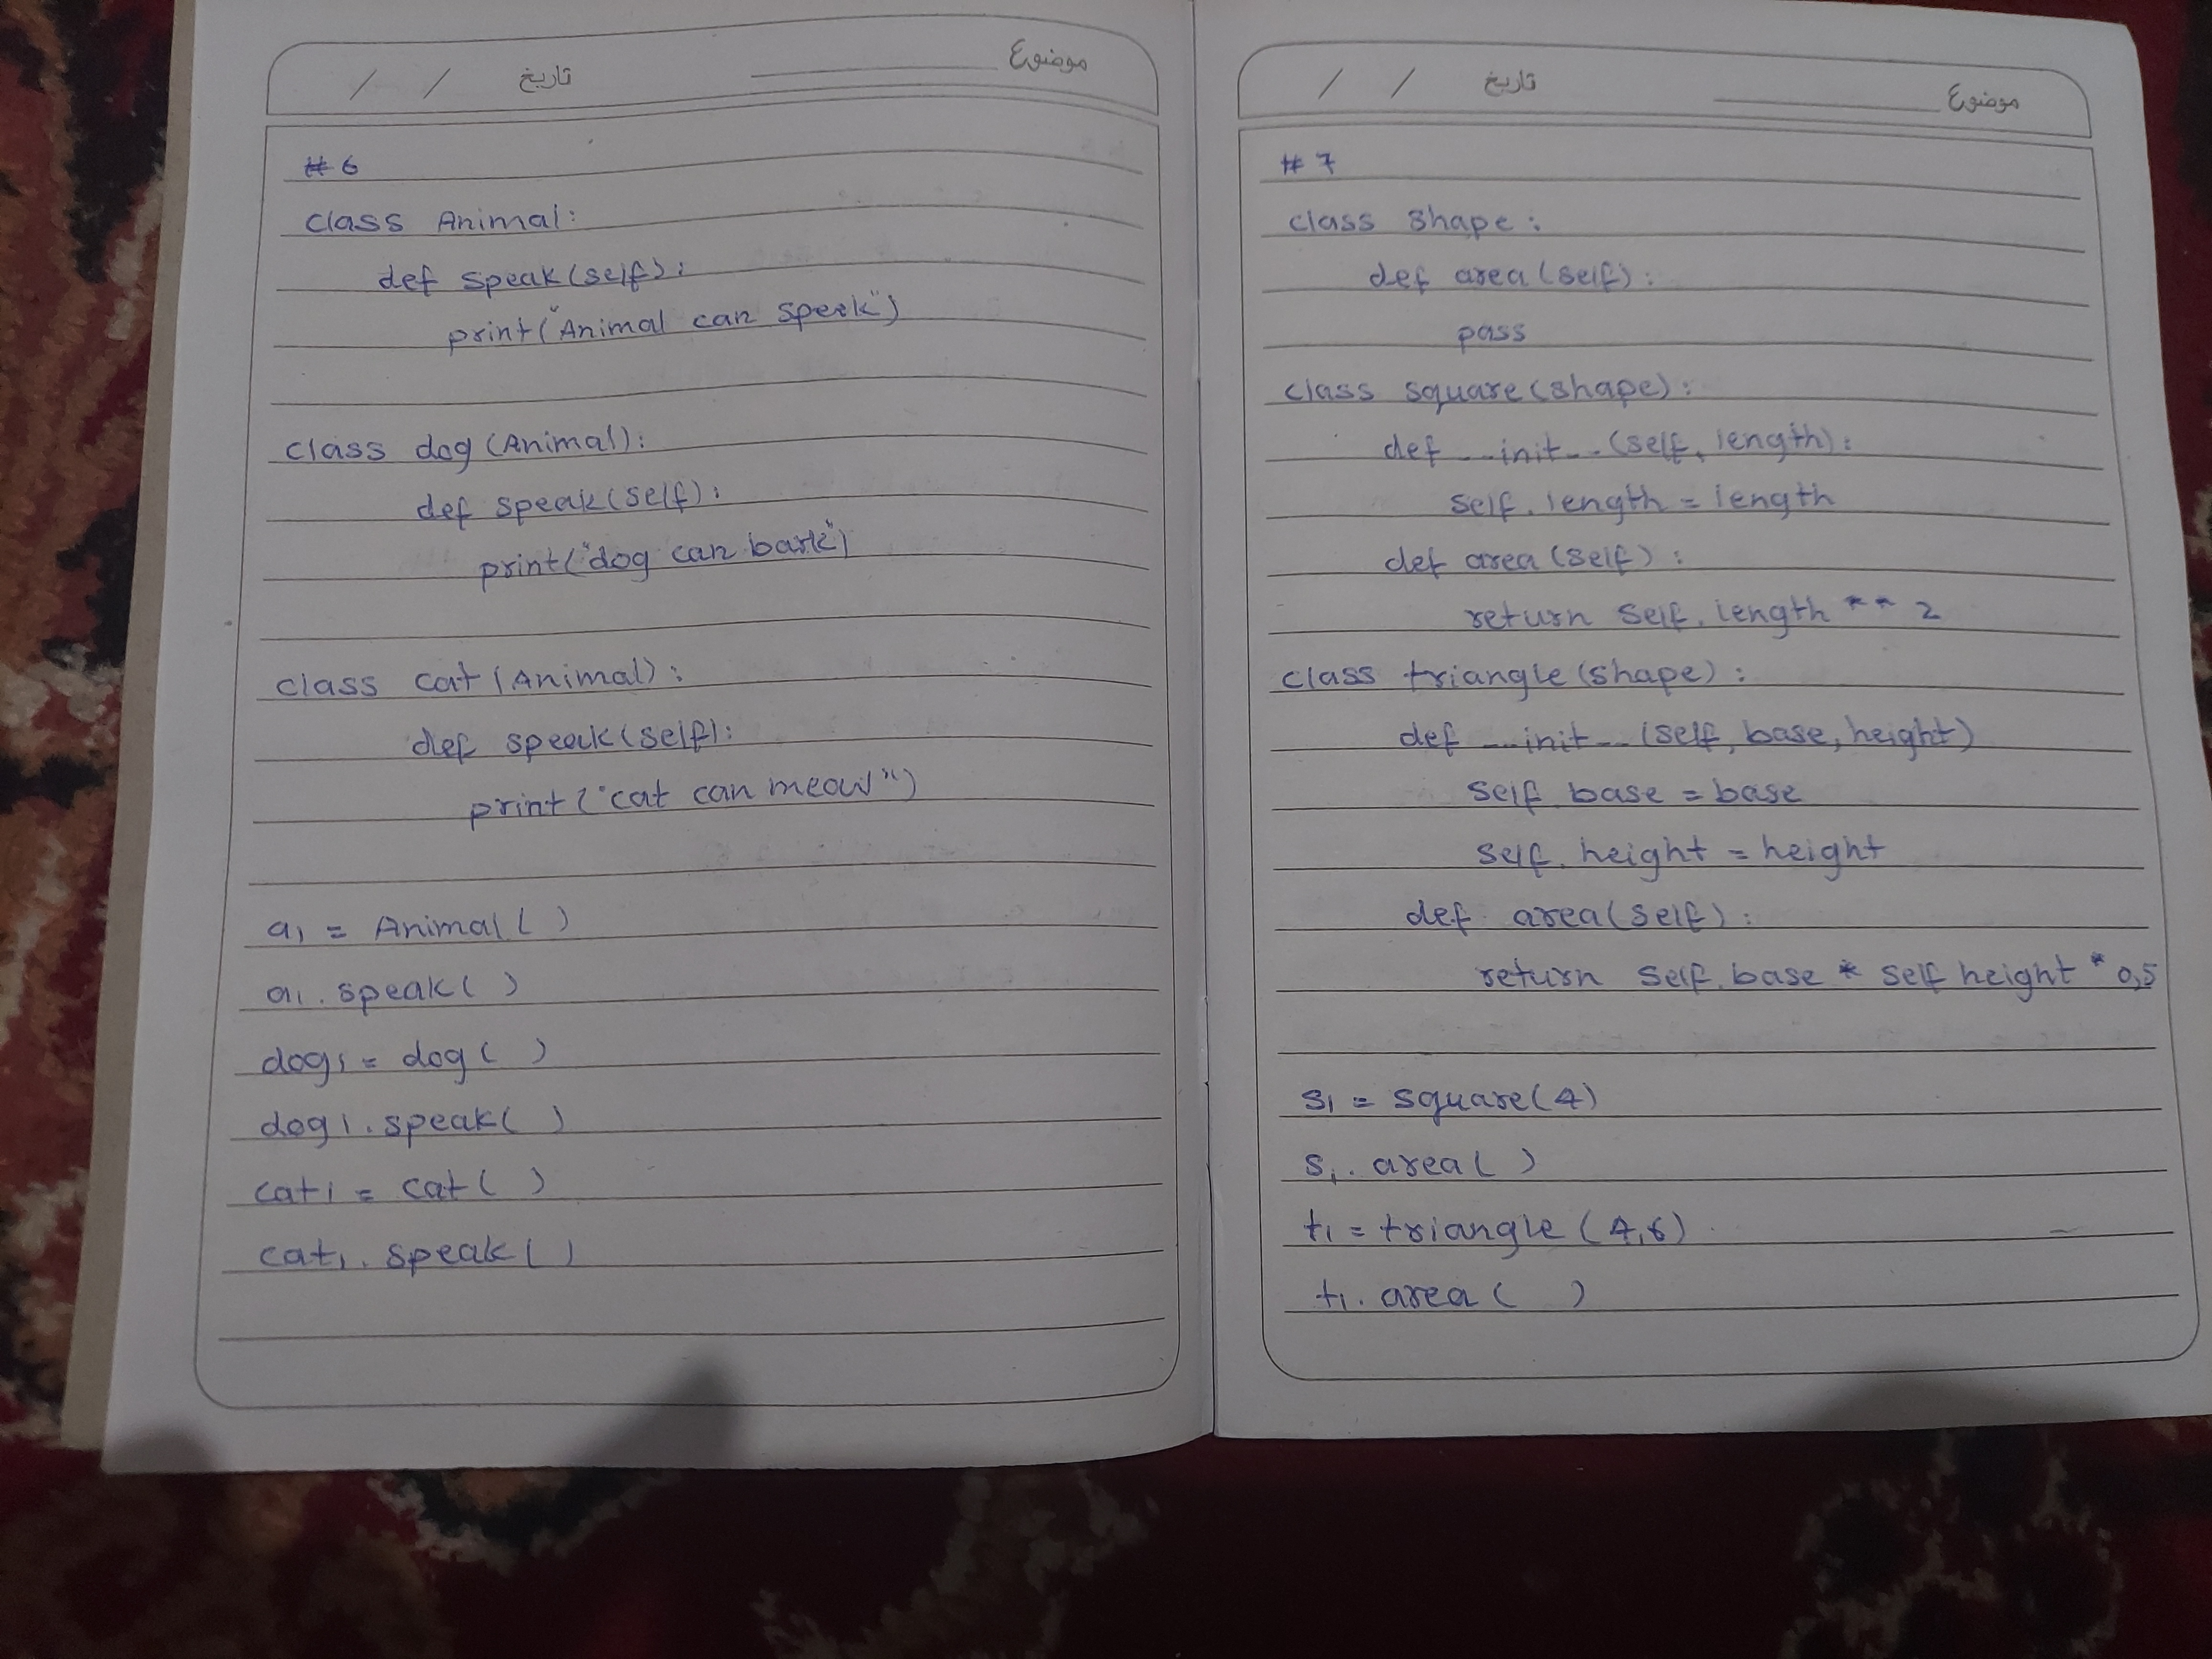 / / تاریخ موضوع
#6
class Animal:
def speak(self):
print("Animal can speak")
class dog(Animal):
def speak(self):
print("dog can bark")
class cat(Animal):
def speak(self):
print("cat can meow")
a1 = Animal( )
a1.speak( )
dog1 = dog( )
dog1.speak( )
cat1 = cat( )
cat1.speak( )
/ / تاریخ موضوع
#7
class shape:
def area(self):
pass
class square(shape):
def __init__(self, length):
self.length = length
def area(self):
return self.length ** 2
class triangle(shape):
def __init__(self, base, height)
self.base = base
self.height = height
def area(self):
return self.base * self height * 0,5
s1 = square(4)
s1.area( )
t1 = triangle(4,6)
t1.area( )